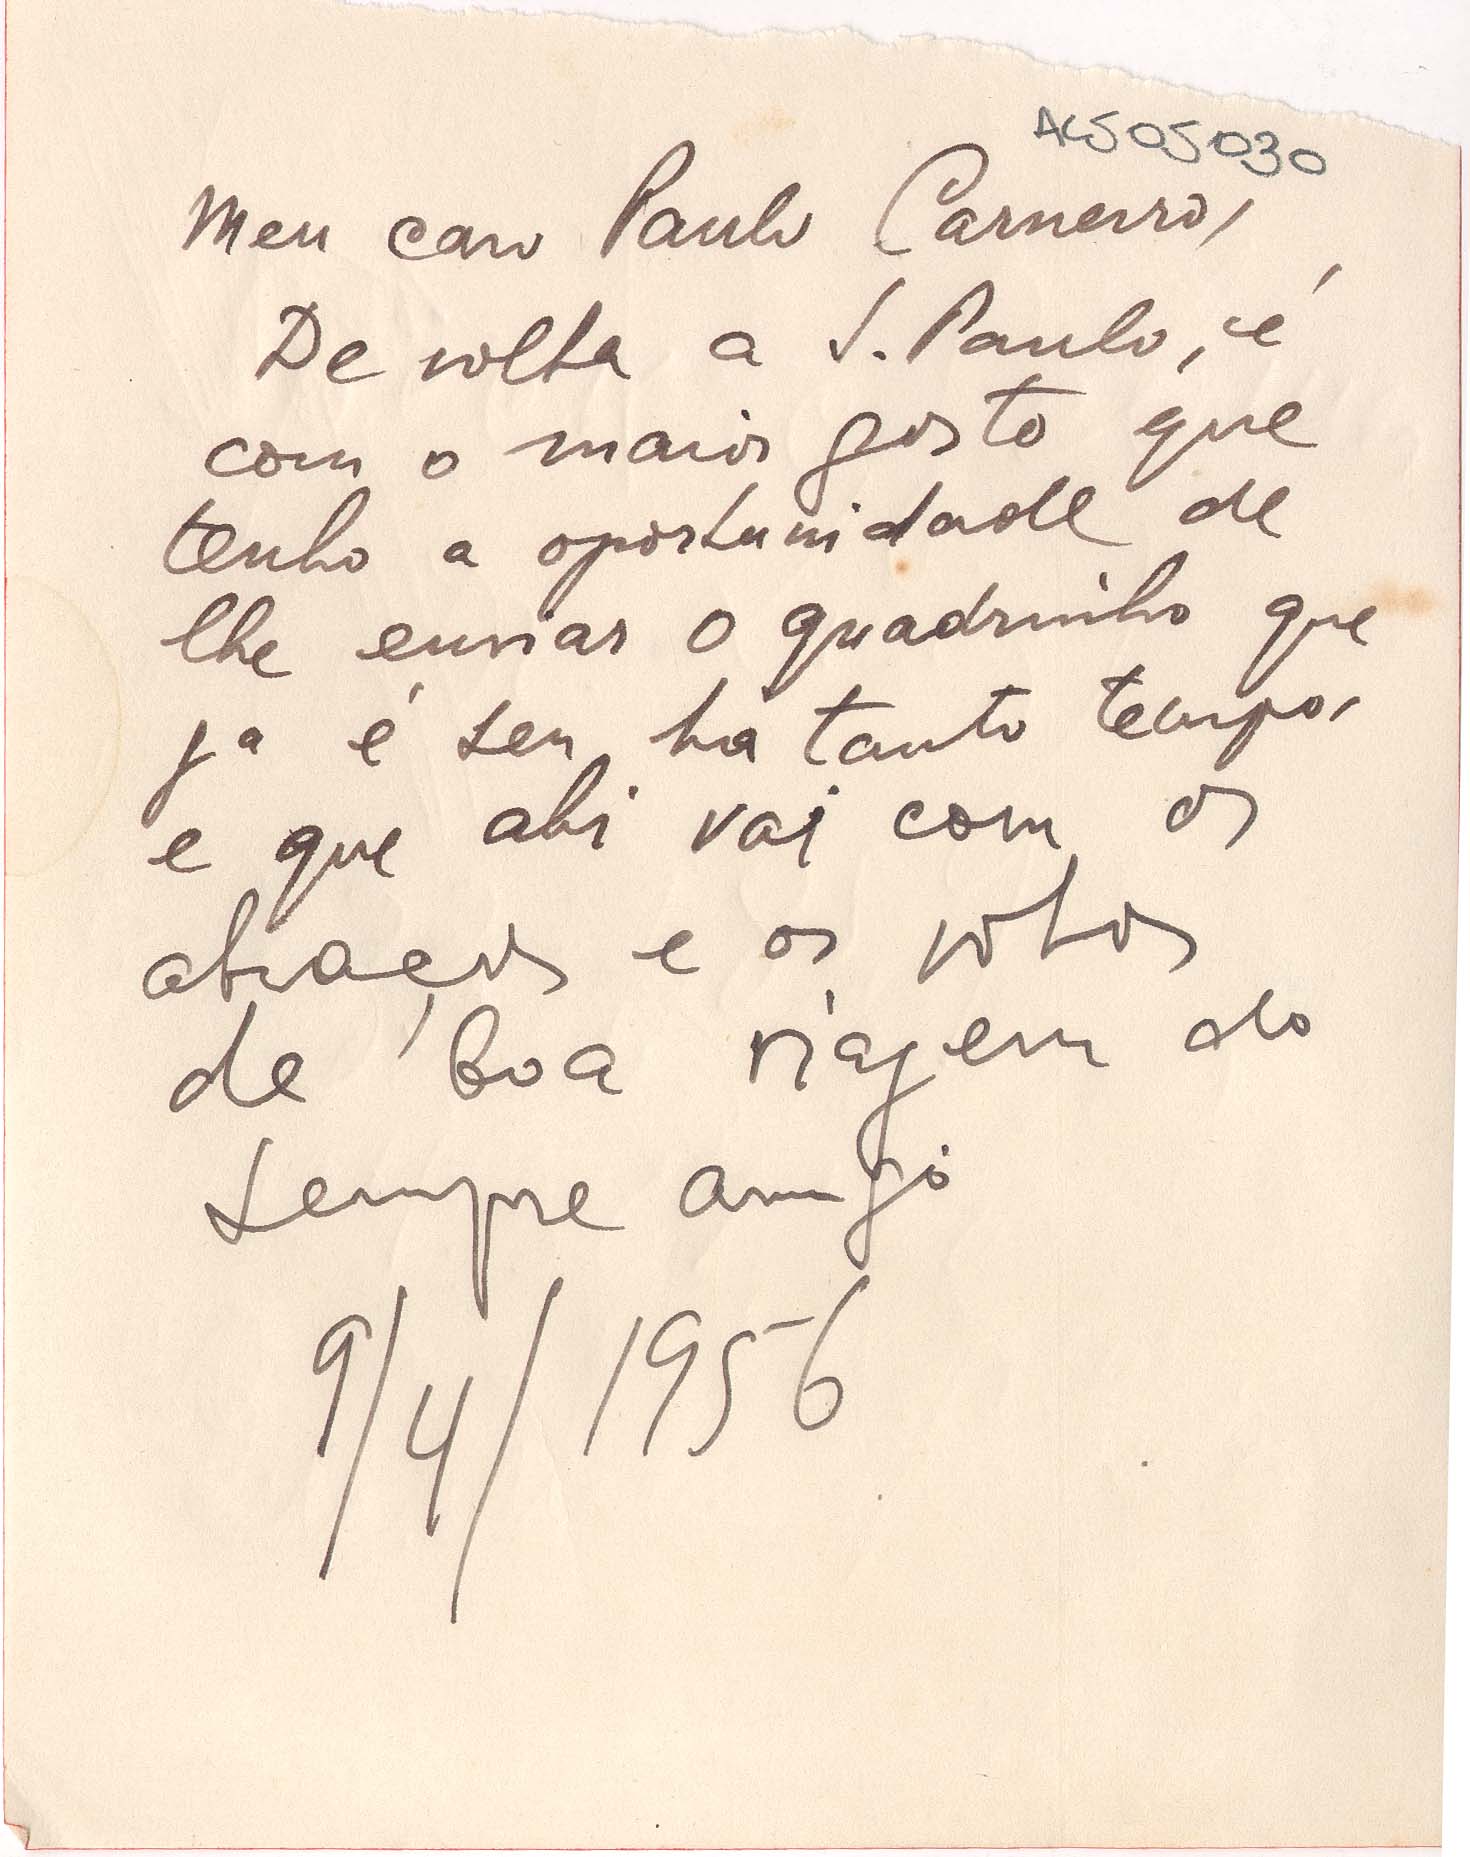 AC505030
Meu caro Paulo Carneiro,
De volta a S. Paulo, é
com o maior gosto que
tenho a oportunidade de
lhe enviar o quadrinho que
já é seu há tanto tempo,
e que ahi vai com os
abraços e os votos
de boa viagem do
sempre amigo
9/4/1956